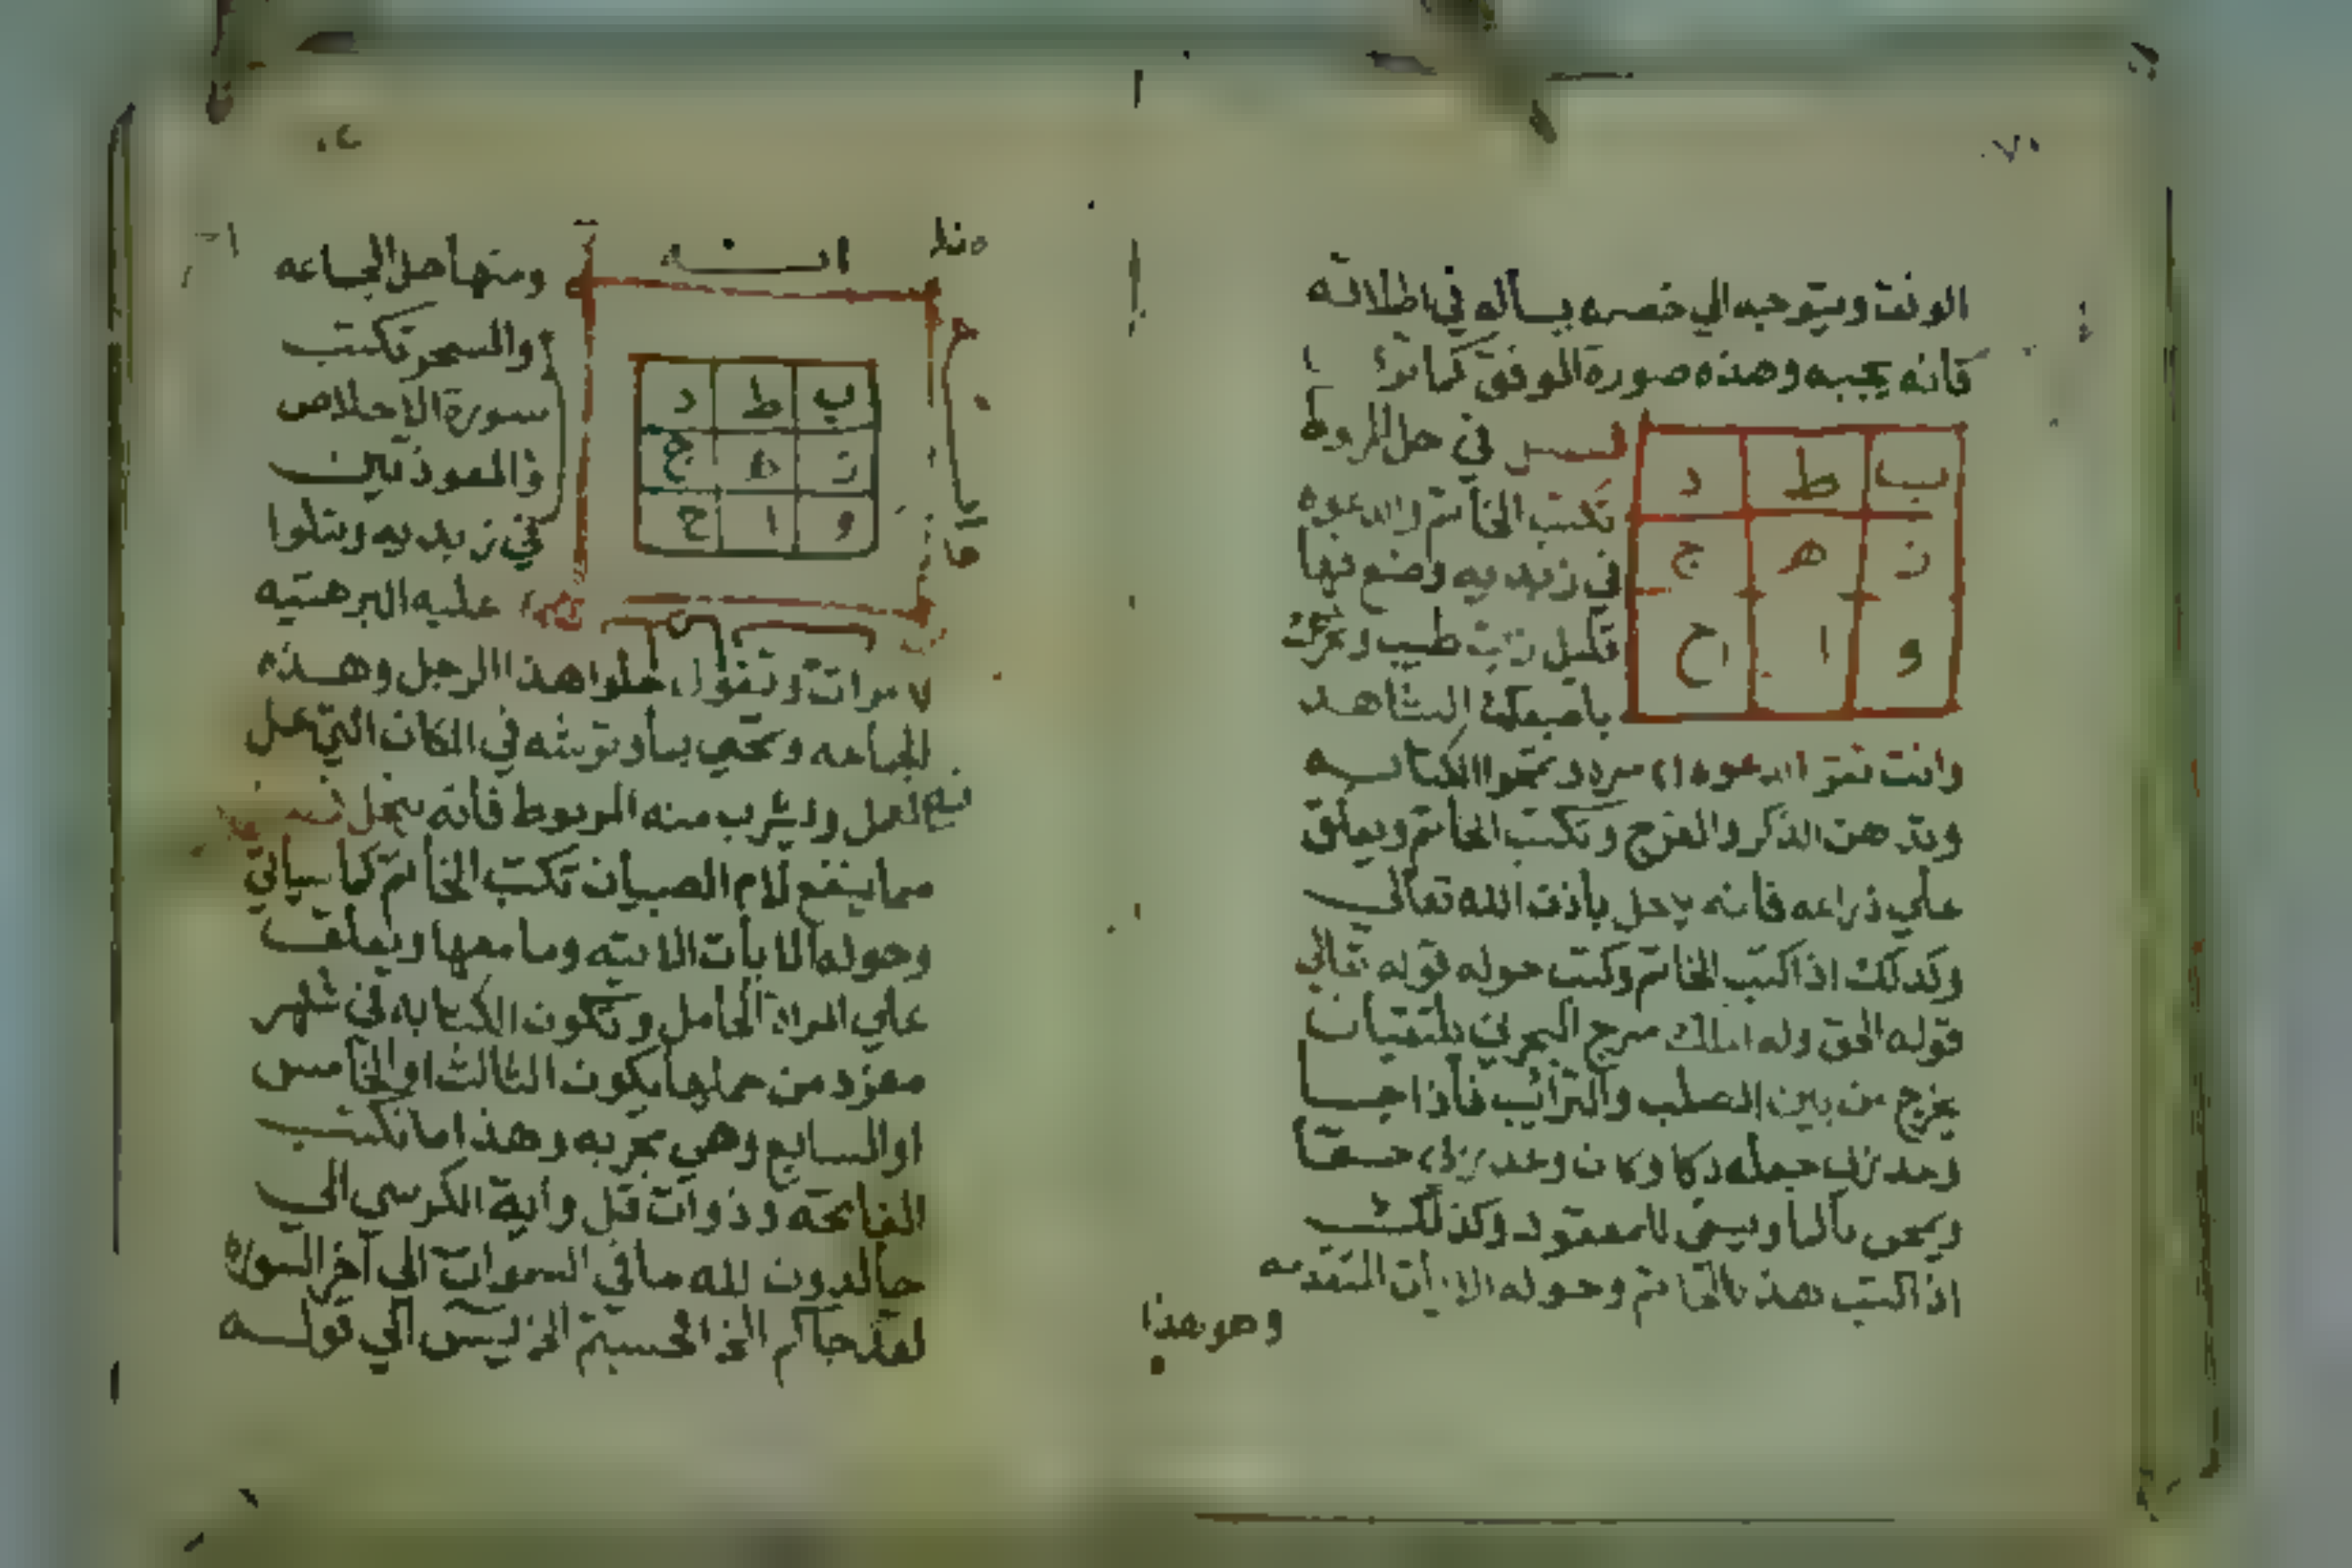 الوفق ويتوجه الي خصمه يساله في اطلاقه
فانه يجيبه وهذه صورة الوفق كما تري
ب ط د
ز ه ج
و ا ح
في حل المربوط
تكتب الخاتم والدعوه
في زبديه وضع فيها
قليل زيت طيب وحرك
باصبعك الشاهد
وانت تقرا الدعوه مره وتمحوا الكتابه
وتدهن الذكر والفرج وتكتب الخاتم ويعلق
علي ذراعه فانه يحل باذن الله تعالي
وكذلك اذا كتب الخاتم وكتب حوله قوله تعالي
قوله الحق وله الملك مرج البحرين يلتقيان
يخرج من بين الصلب والترائب فاذا جا
وعد ربي جعله دكا وكان وعد ربي حقا
ويمحي بالما ويسقي للمعقود وكذلك
اذا كتب هذا الخاتم وحوله الايات المتقدمه
وهو هذا
ب ط د
ز ه ج
و ا ح
ومنها حل الجماعه
والسحر تكتب
سورة الاخلاص
والمعوذتين
في زبديه وتتلوا
عليه البرهتيه
٧ مرات وتقول حلوا هذا الرجل وهذه
الجماعه وتمحي بما وترشه في المكان التي عمل
فيه العمل ويشرب منه المربوط فانه ينحل
مما ينفع لام الصبيان تكتب الخاتم كما سياتي
وحوله الايات الاتيه وما معها ويعلق
علي المراة الحامل وتكون الكتابه في شهر
مفرد من حملها يكون الثالث او الخامس
او السابع وهي مجربه وهذا ما تكتب
الفاتحة وذوات قل واية الكرسي الي
خالدون لله ما في السموات الي اخر السورة
لقد جاكم الخ افحسبتم الخ يس الي قوله